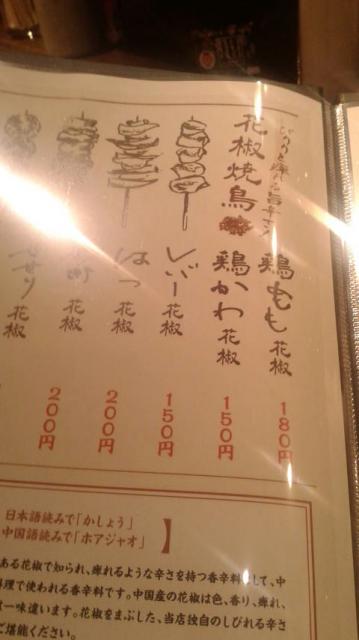 花椒焼鳥
鶏もも 花椒
180円
鶏かわ 花椒
150円
レバー 花椒
150円
はつ 花椒
200円
花椒
200円
せせり 花椒
日本語読みで「かしょう」
中国語読みで「ホアジャオ」】
ある花椒で知られ、痺れるような辛さを持つ香辛料
して、中
料理で使われる香辛料です。中国産の花椒は色、香り、痺れ、
一味違います。花椒をまぶした、当店独自のしびれる辛さ
ご堪能ください。